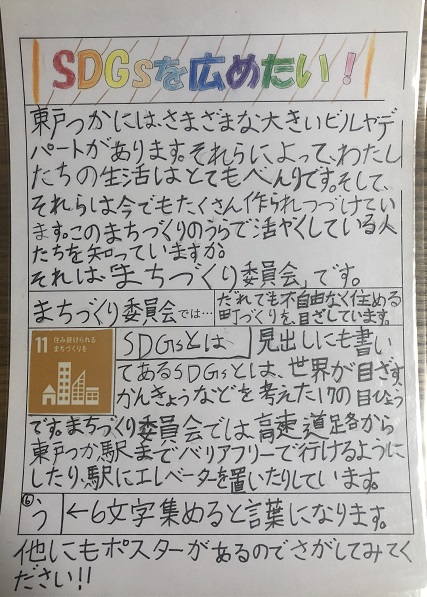 SDGsを広めたい!
東戸つかには、さまざまな大きいビルやデ
パートがあります。それらによって、わたし
たちの生活はとてもべんりです。そして、
それらは今でもたくさん作られつづけてい
ます。このまちづくりのうらで活やくしている人
たちを知っていますか。
それは、「まちづくり委員会」です。
まちづくり委員会では…
だれでも不自由なく住める
町づくりを、目ざしています。
11 住み続けられる
まちづくりを
SDGsとは
見出しにも書い
てあるSDGsとは、世界が目ざす、
かんきょうなどを考えた17の目ひょう
です。まちづくり委員会では、高速道路から
東戸つか駅までバリアフリーで行けるように
したり、駅にエレベーターを置いたりしています。
⑥
う
←6文字集めると言葉になります。
他にもポスターがあるのでさがしてみてく
ださい!!